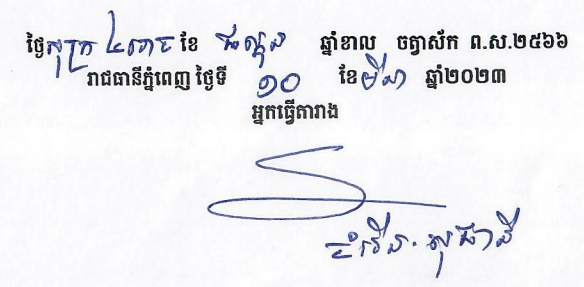 ថ្ងៃសុក្រ ៤រោច ខែ ផល្គុន ឆ្នាំខាល ចត្វាស័ក ព.ស.២៥៦៦
រាជធានីភ្នំពេញ ថ្ងៃទី ១០ ខែមីនា ឆ្នាំ២០២៣
អ្នកធ្វើតារាង